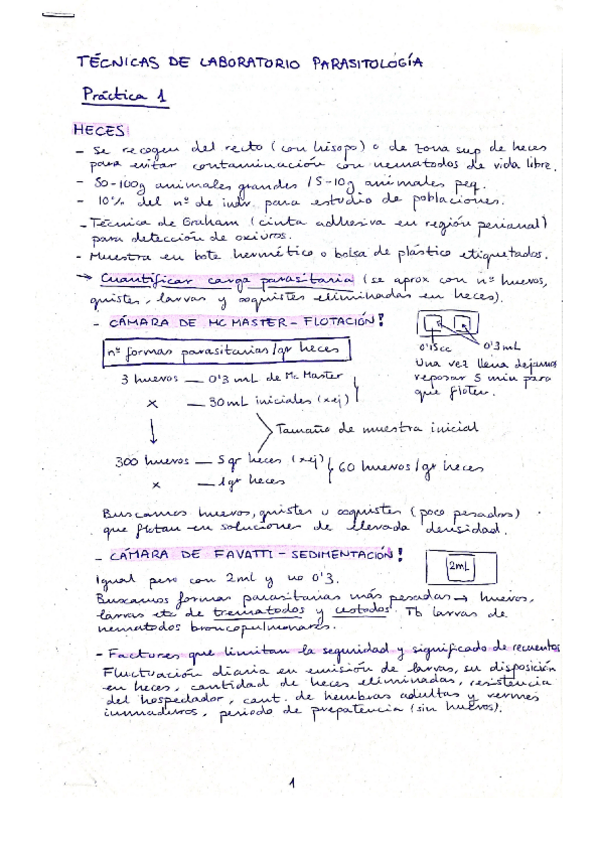 TÉCNICAS DE LABORATORIO PARASITOLOGÍA
Práctica 1
HECES
- Se recogen del recto (con hisopo) o de zona sup de heces
para evitar contaminación con nematodos de vida libre.
- 50-100g animales grandes / 5-10g animales peq.
- 10% del nº de indv. para estudio de poblaciones.
- Técnica de Graham (cinta adhesiva en región perianal)
para detección de oxiuros.
- Muestra en bote hermético o bolsa de plástico etiquetados.
→ Cuantificar carga parasitaria (se aprox con nº huevos,
quistes, larvas y ooquistes eliminadas en heces).
- CÁMARA DE MC MASTER - FLOTACIÓN!
0'15cc 0'3mL
nº formas parasitarias/gr heces
Una vez llena dejamos
reposar 5 min para
que floten.
3 huevos — 0'3 mL de Mc Master
x — 30mL iniciales (xej)
Tamaño de muestra inicial
300 huevos — 5gr heces (xej)
x — 1gr heces
60 huevos/gr heces
Buscamos huevos, quistes u ooquistes (poco pesados)
que flotan en soluciones de elevada densidad.
- CÁMARA DE FAVATTI - SEDIMENTACIÓN!
2mL
Igual pero con 2ml y no 0'3.
Buscamos formas parasitarias más pesadas → huevos,
larvas etc de trematodos y cestodos. Tb larvas de
nematodos broncopulmonares.
- Factores que limitan la seguridad y significado de recuentos
Fluctuación diaria en emisión de larvas, su disposición
en heces, cantidad de heces eliminadas, resistencia
del hospedador, cant. de hembras adultas y vermes
inmaduros, periodo de prepatencia (sin huevos).
1